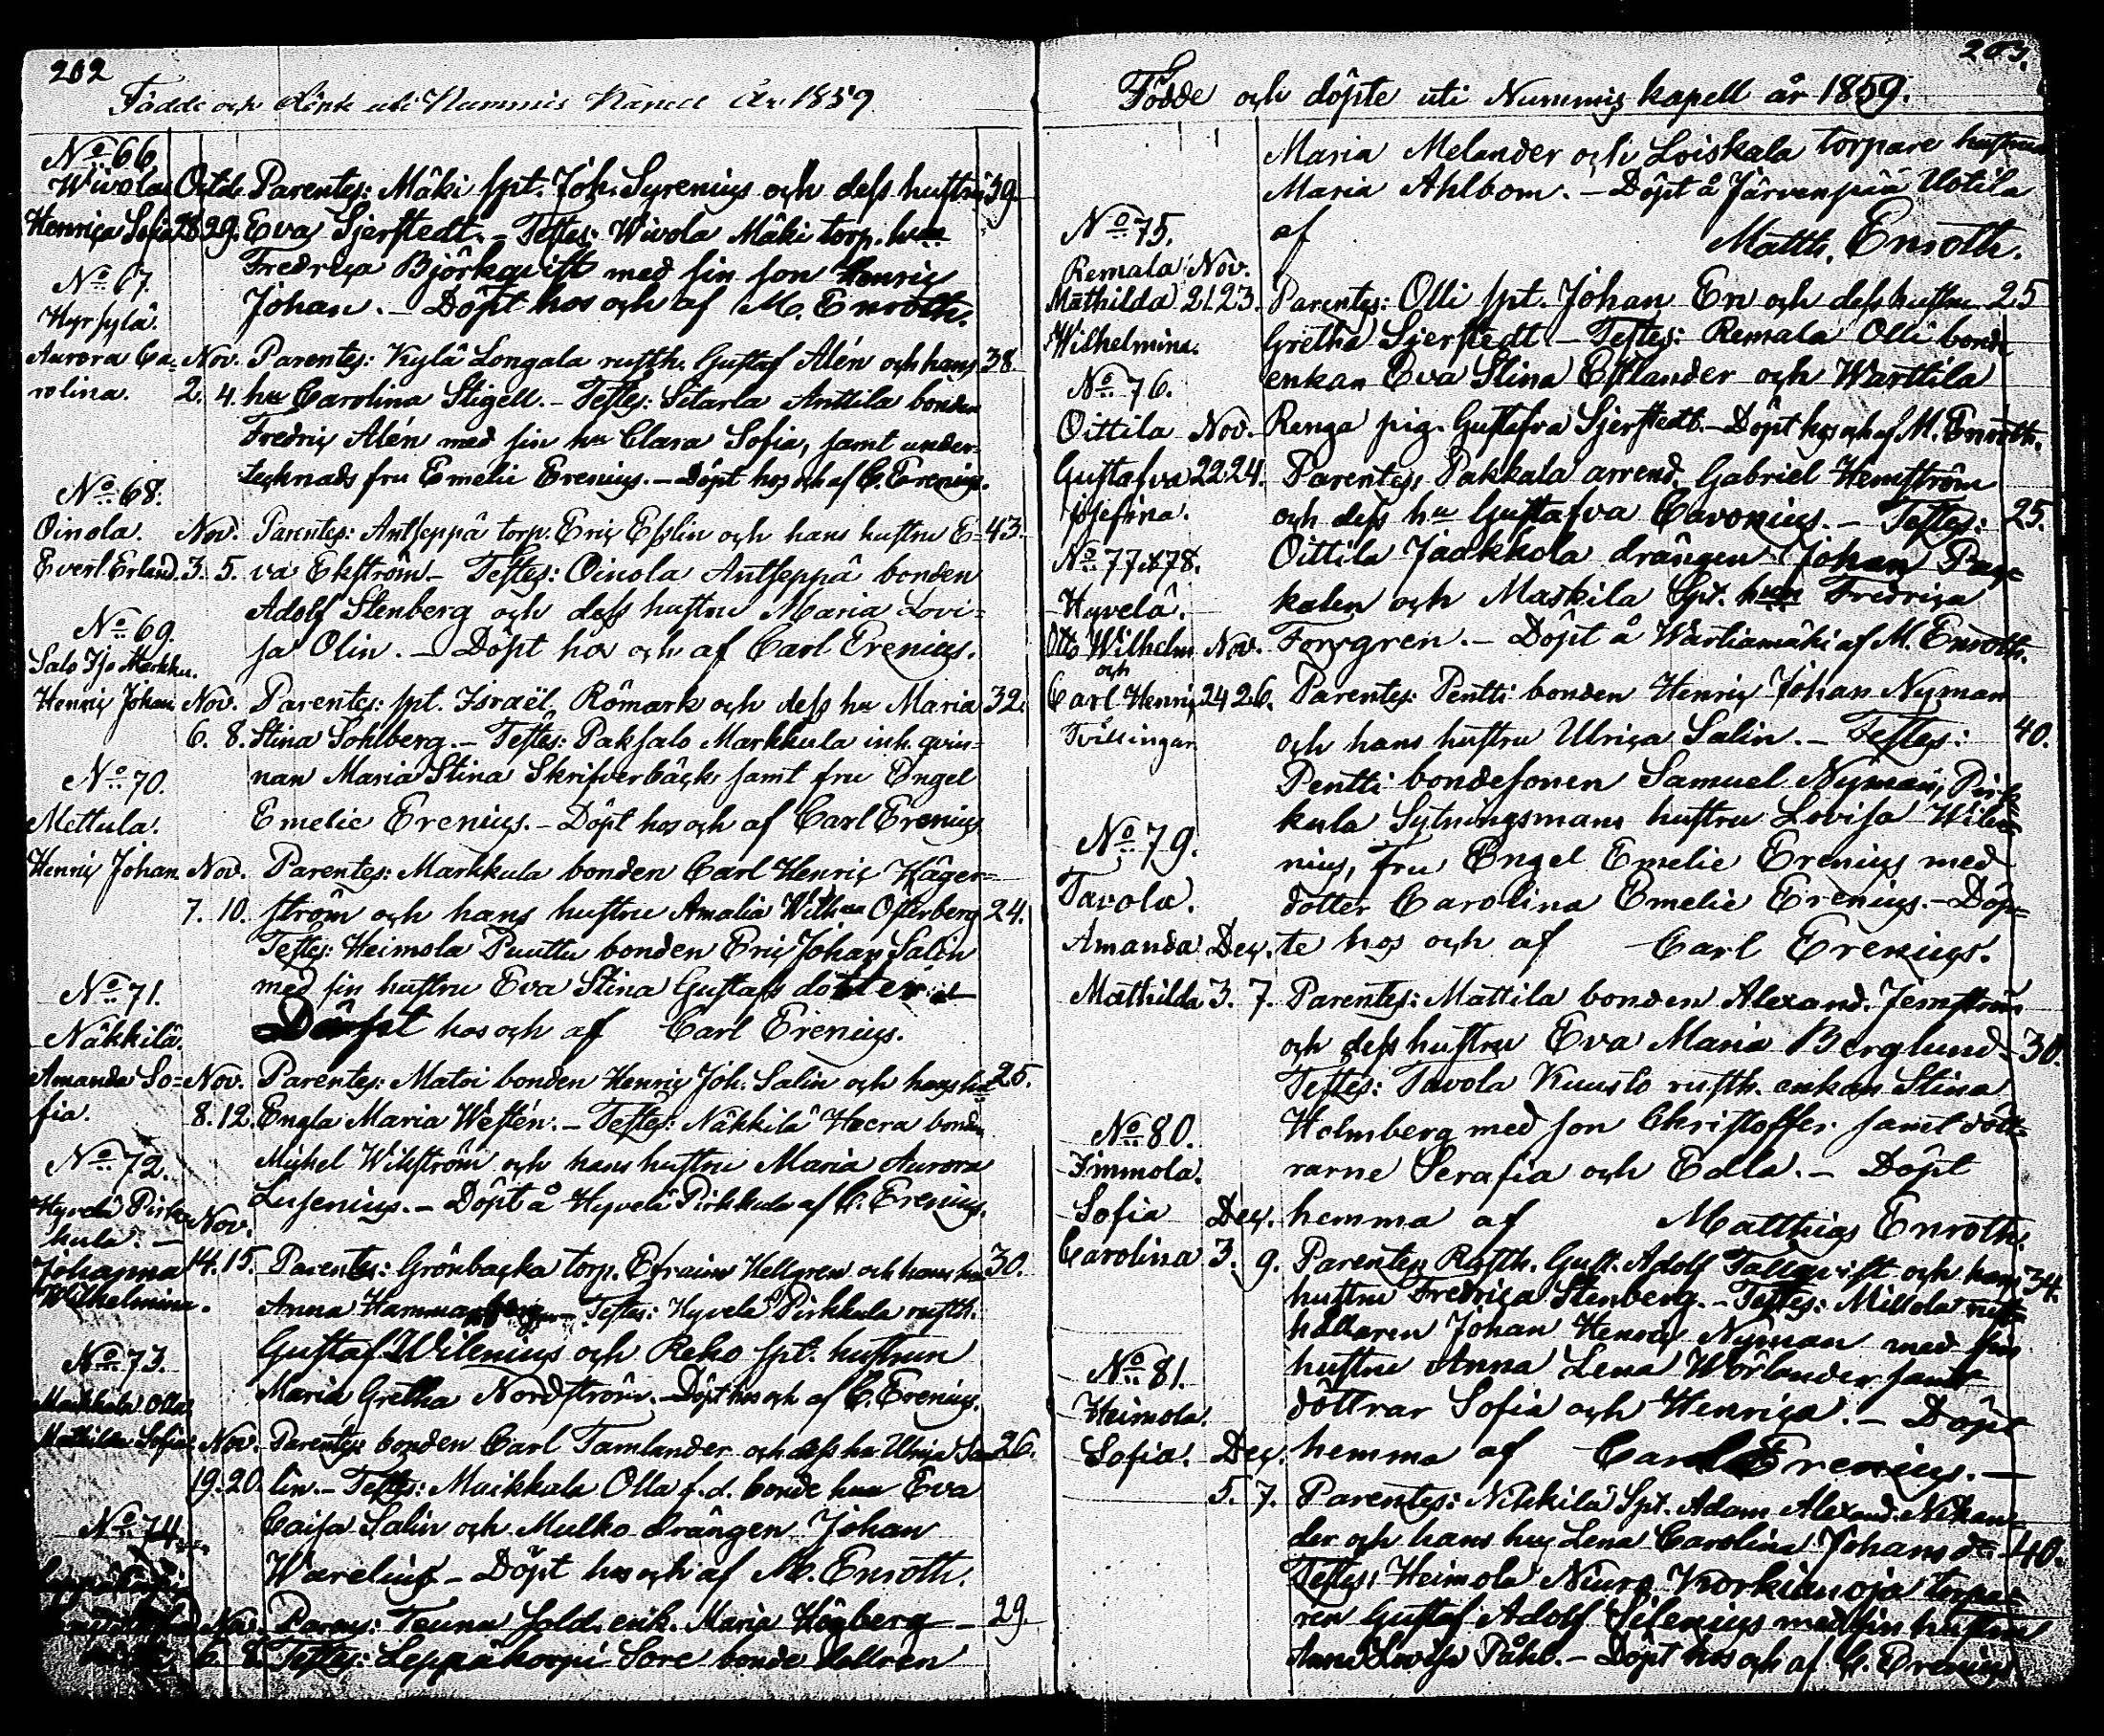 202
Födde och döpte uti Nummis Kapell År 1859.
No 66
Wivola Octob. Parentes: Mäki spt. Joh. Syrenius och dess hustru 39.
Henrica Sofia 28 29. Eva Sjerstedt. – Testes: Wivola Mäki torp. hu
Fredrica Björkqvist med sin son Henric
No 67.
Johan. – Döpt hos och af M. Enroth.
Hyrsylä.
Aurora Ca- Nov. Parentes: Kylä Longala rusth. Gustaf Alén och hans 38.
rolina. 2. 4. hu Carolina Stigell. – Testes: Sitarla Anttila bonden
Fredric Alén med sin hu Clara Sofia, samt under-
tecknads fru Emelie Erenius. – Döpt hos och af C. Erenius.
No 68.
Oinola. Nov. Parentes: Antseppä torp. Eric Esslin och hans hustru E- 43.
Evert Erland. 3. 5. va Ekström – Testes: Oinola Antseppä bonden
Adolf Stenberg och dess hustru Maria Lovi-
No 69.
sa Olin. – Döpt hos och af Carl Erenius.
Salo Iso Markku.
Henric Johan Nov. Parentes: spt. Israël Römark och dess hu Maria 32.
6. 8. Stina Sohlberg. – Testes: Paksalo Markkula inh. qvin-
No 70.
nan Maria Stina Skrifverbäck samt fru Engel
Mettula.
Emelie Erenius. – Döpt hos och af Carl Erenius
Henric Johan. Nov. Parentes: Markkula bonden Carl Henric Häger-
7. 10. ström och hans hustru Amalia Wilhna Osterberg 24.
Testes: Heimola Puuttu bonden Eric Johan Salin
med sin hustru Eva Stina Gustafs dotter
No 71.
Döpt hos och af Carl Erenius.
Näkkilä.
Amanda So- Nov. Parentes: Matoi bonden Henric Joh. Salin och hans hu 25.
fia. 8. 12. Engla Maria Westén. – Testes: Näkkilä Hacra bonden
No 72.
Mickel Wikström och hans hustru Maria Aurora
Lusenius. – Döpt å Hyvelä Pirkkula af C. Erenius.
Hyvelä Pirk- Nov.
kula. –
Johanna 14. 15. Parentes: Grönbacka torp. Efraim Hellgren och hans hu 30.
Wilhelmina. Anna – Testes: Hyvelä Pirkkula rusth.
Gustaf Wilenius och Reko spt. hustrun
No 73.
Maria Gretha Nordström. – Döpt hos och af C. Erenius.
Maikkala Olla
Mathilda Sofia Nov. Parentes bonden Carl Tamlander och dess hu Ulrica Sa- 26.
19. 20. lin. – Testes: Maikkala Olla f.d. bonde hun Eva
No 74.
Caisa Salin och Mulko drängen Johan
Warelius – Döpt hos och af M. Enroth.
Nov. Parens: Teunu sold. enk. Maria Högberg – 29.
6. 8. Testes: Leppäkorpi Sore bonde dottren
203.
Födde och döpte uti Nummis kapell år 1859.
Maria Melander och Loiskala torpare hustrun
Maria Ahlbom. – Döpt å Järvenpää Uotila
af
Matth. Enroth.
No 75.
Remala Nov.
Mathilda 21. 23. Parentes: Olli spt. Johan En och dess hustru 25
Wilhelmina. Gretha Sjerstedt – Testes: Remala Olli bonde
enkan Eva Stina Estlander och Warttila
No 76.
Oittila Nov. Renga pig. Gustafva Sjerstedt. – Döpt hos och af M. Enroth.
Gustafva 22 24. Parentes: Pakkala arrend. Gabriel Hemström
Josefina. och dess hu Gustafva Cavonius. – Testes: 25.
No 77 & 78. Oittila Jaakkola drängen Johan Pas-
Hyvelä. kalen och Maskila Spt. hun Fredrica
Otto Wilhelm Nov. Forsgren. – Döpt å Wartiamäki af M. Enroth.
och
Carl Henric 24 26. Parentes: Pentti bonden Henric Johan Nyman
Tvillingar och hans hustru Ulrica Salin. – Testes: 40.
Pentti bondesonen Samuel Nyman, Pirk-
kula Sytningsmans hustru Lovisa Wile-
No 79.
nius, Fru Engel Emelie Erenius med
Tavola. dotter Carolina Emelie Erenius. – Döp-
Amanda Dec. te hos och af Carl Erenius.
Mathilda 3. 7. Parentes: Mattila bonden Alexand. Jernström
och dess hustru Eva Maria Berglund – 30.
Testes: Tavola Kuusto rusth. enkan Stina
No 80.
Holmberg med son Christoffer samt dött-
Immola. rarne Serafia och Edla. – Döpt
Sofia Dec. hemma af Matthias Enroth.
Carolina 3. 9. Parentes: Rusth. Gust. Adolf Tallqvist och hans 34.
hustru Fredrica Stenberg. – Testes: Millola rust-
hållaren Johan Henric Nyman med sin
No 81.
hustru Anna Lena Wörlander samt
Heimola. döttrar Sofia och Henrica. – Döpt
Sofia. Dec. hemma af Carl Erenius. –
5. 7. Parentes: Nikkilä Spt. Adam Alexand. Nikan-
der och hans hu Lena Carolina Johansd. – 40.
Testes: Heimola Niura Korkianoja torpa-
ren Gustaf Adolf Silenius med sin hustru
Anna Lovisa Påhl. – Döpt hos och af C. Erenius.